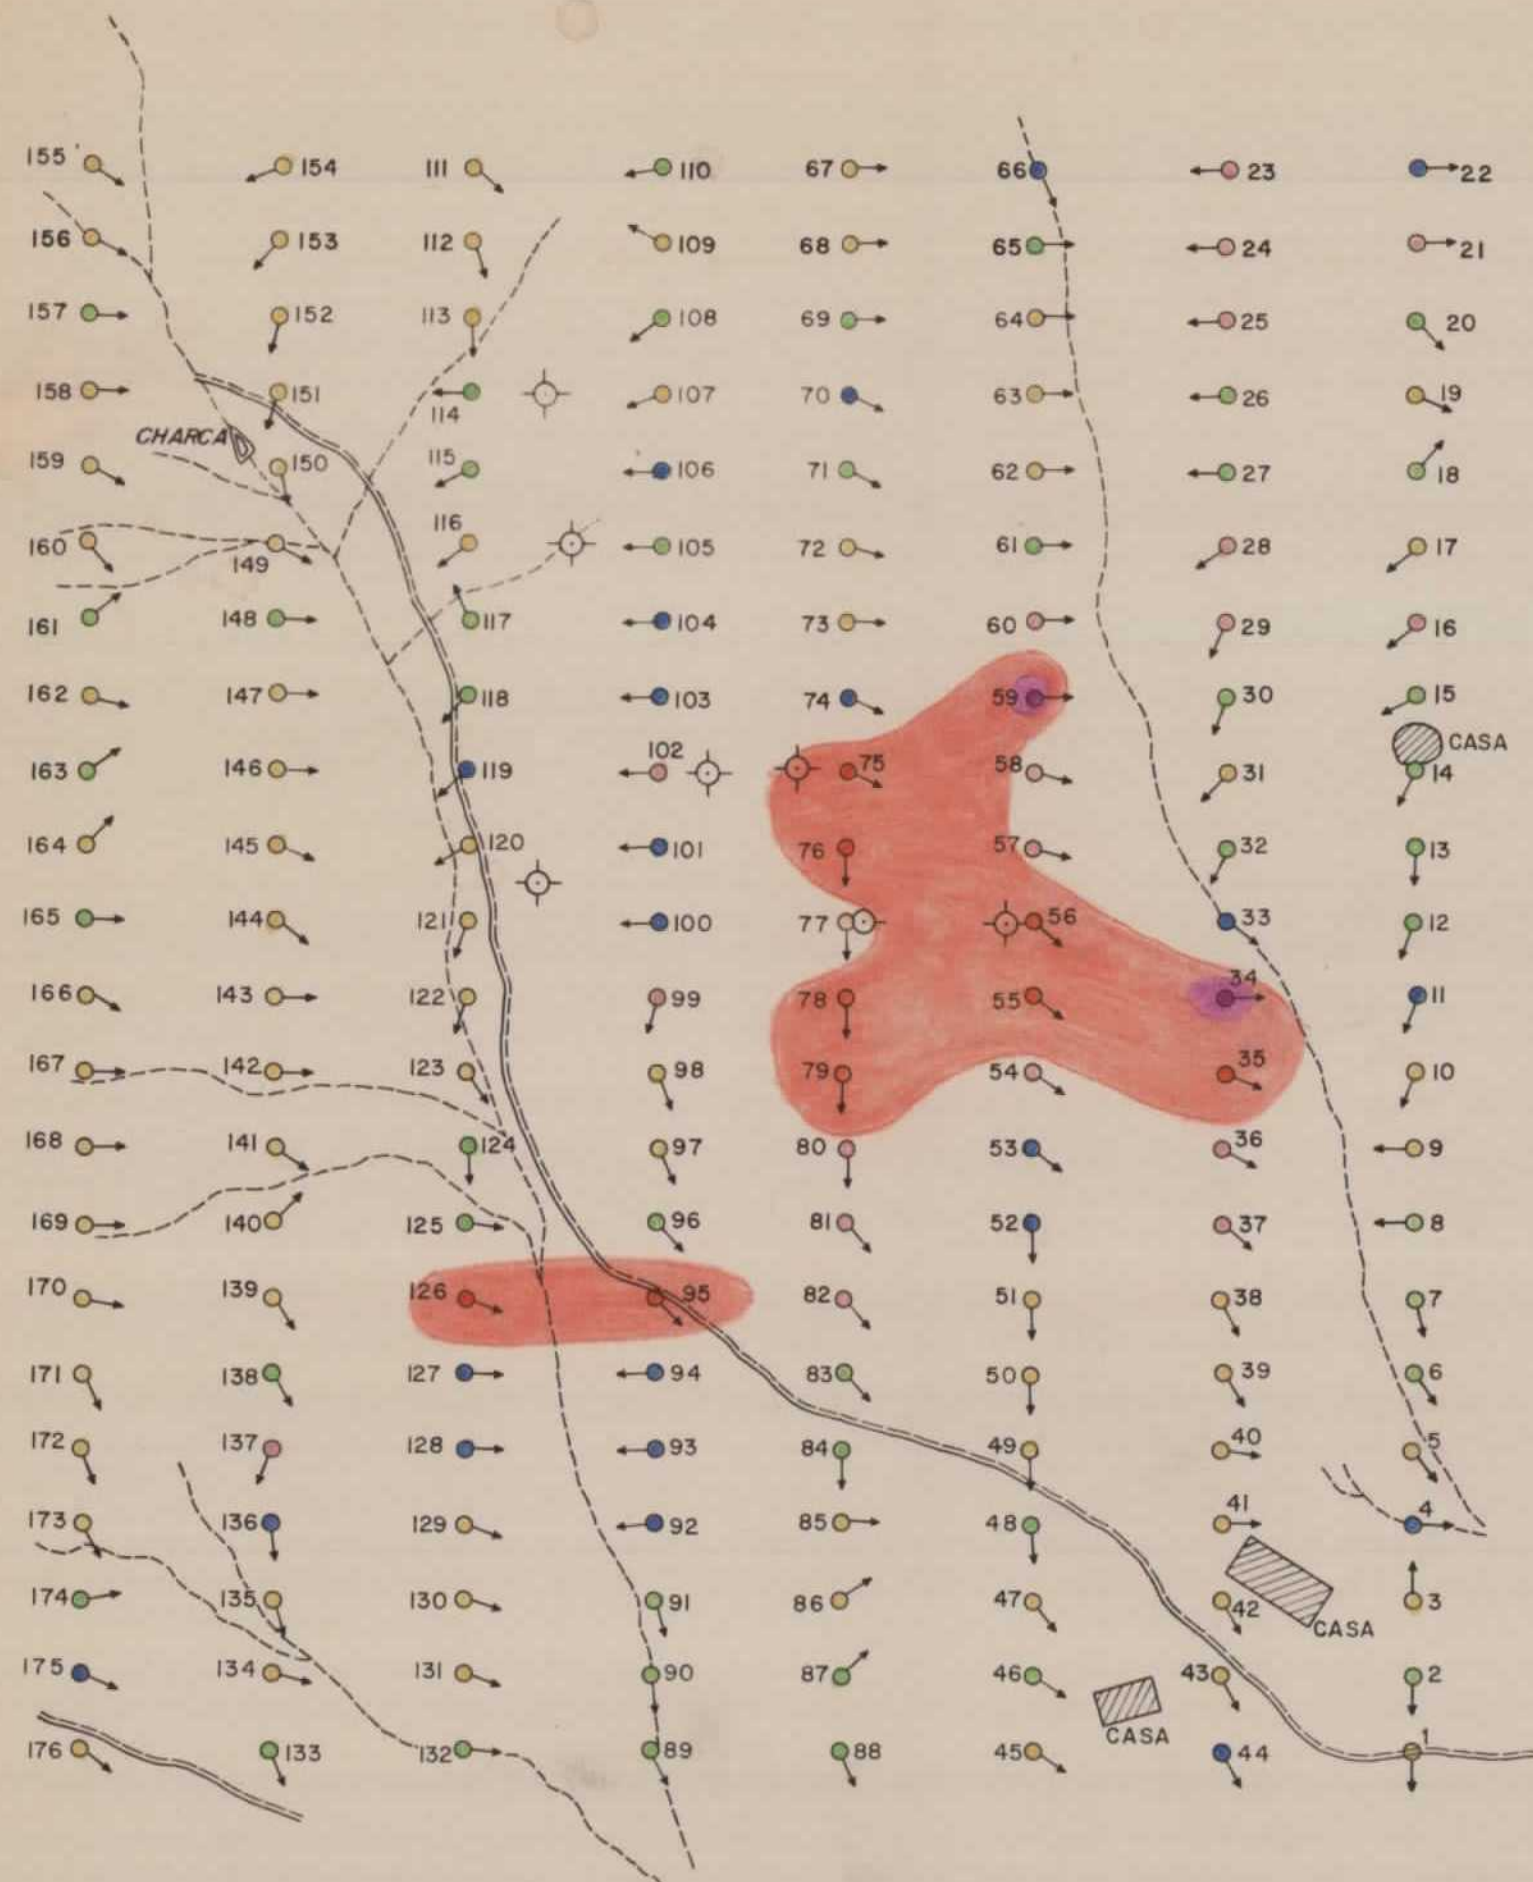 155 154 111 110 67 66 23 22
156 153 112 109 68 65 24 21
157 152 113 108 69 64 25 20
158 151 114 107 70 63 26 19
CHARCA
159 150 115 106 71 62 27 18
160 149 116 105 72 61 28 17
161 148 117 104 73 60 29 16
162 147 118 103 74 59 30 15
CASA
163 146 119 102 75 58 31 14
164 145 120 101 76 57 32 13
165 144 121 100 77 56 33 12
166 143 122 99 78 55 34 11
167 142 123 98 79 54 35 10
168 141 124 97 80 53 36 9
169 140 125 96 81 52 37 8
170 139 126 95 82 51 38 7
171 138 127 94 83 50 39 6
172 137 128 93 84 49 40 5
173 136 129 92 85 48 41 4
174 135 130 91 86 47 42 3
CASA
175 134 131 90 87 46 43 2
CASA
176 133 132 89 88 45 44 1